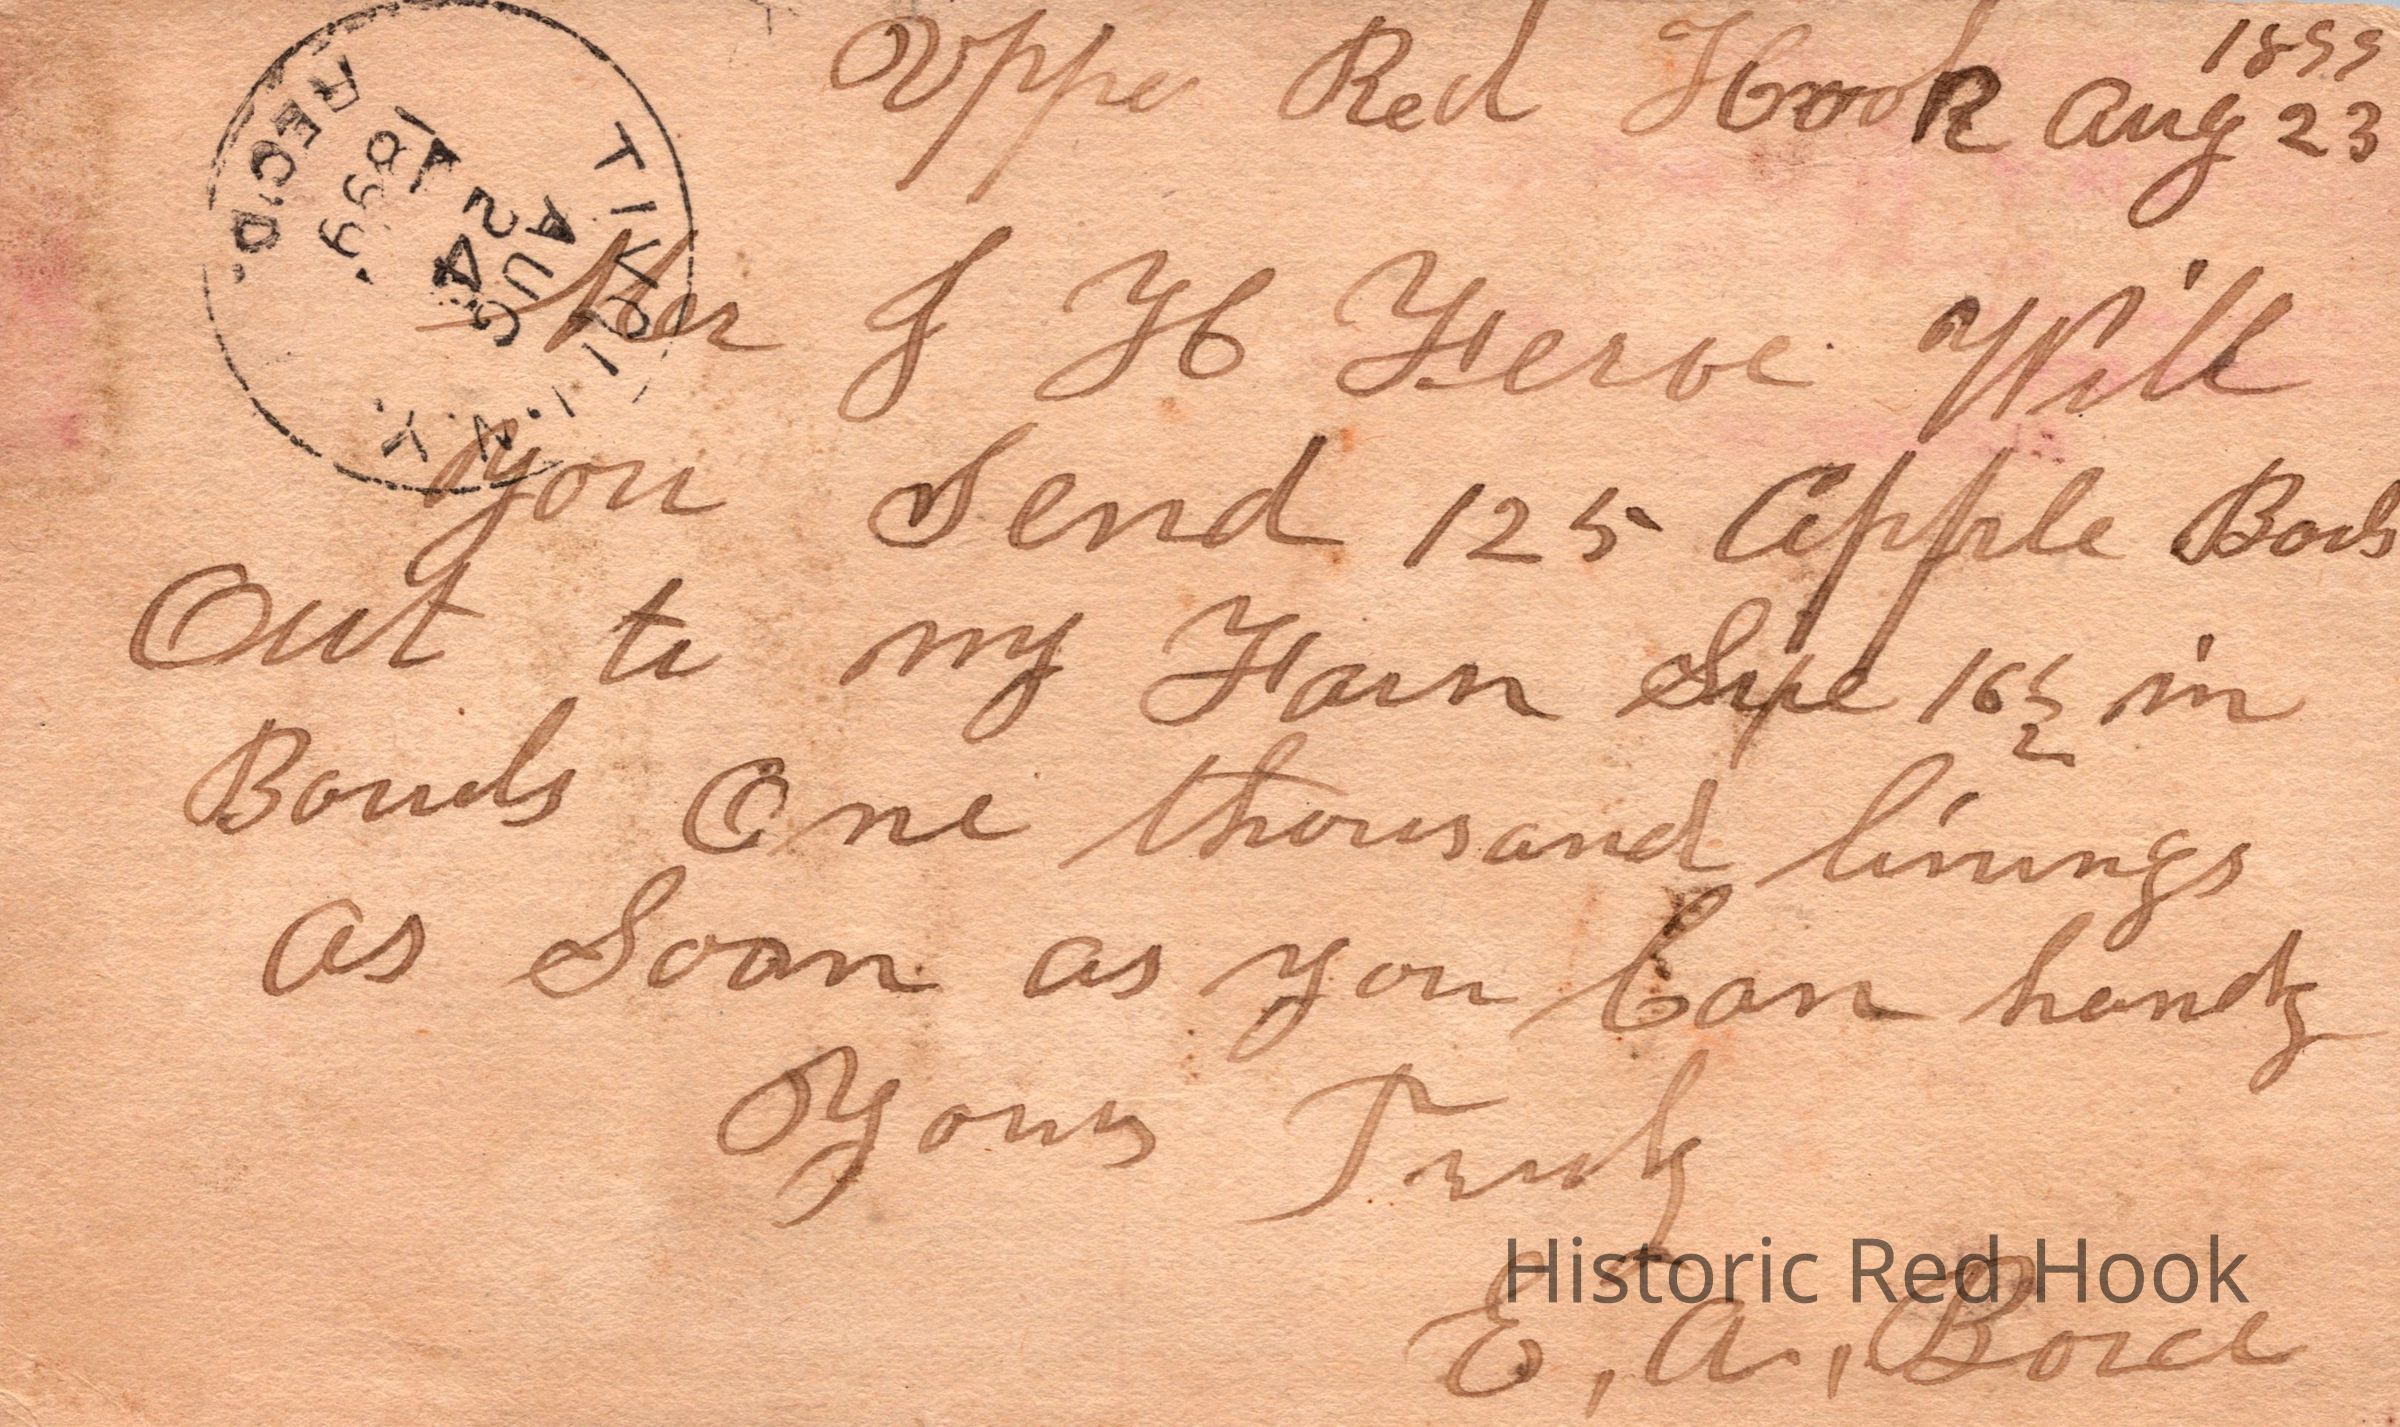 Upper Red Hook Aug 23
1899
Mr J H Feroe Will
you Send 125 Apple Bods
Out to my Farm Sise 16 1/2 in
Bouds One thousand linings
as Soon as you Can handy
Yours Truly
E, A,
TIVOLI. N.Y.
AUG
24
1899
REC'D.
Historic Red Hook